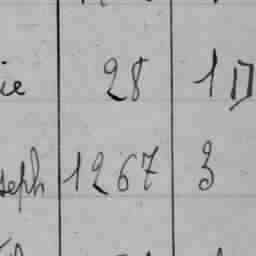 ie 28 1D
seph 1267 3